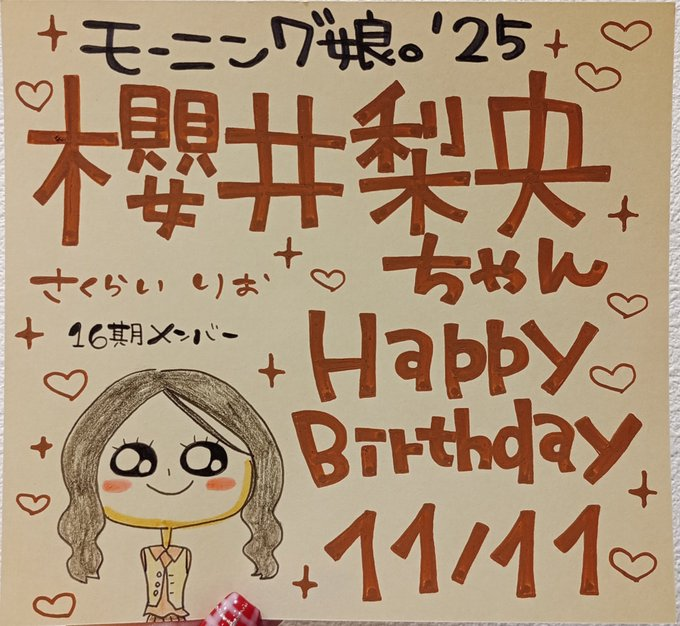 モーニング娘。'25
櫻井梨央
ちゃん
さくらい りお
16期メンバー
Happy
Birthday
11/11